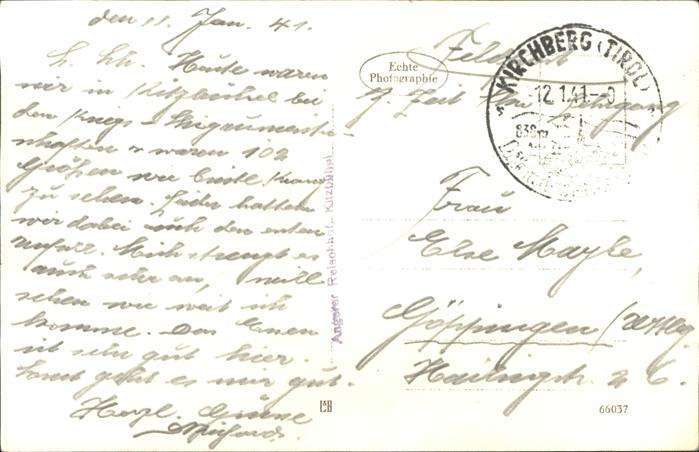 den 11. Jan. 41.
Heute waren
wir in Kitzbühel bei
den Kriegs-
waren 102
Größen wie
zu sehen. Jeder hatten
wir dabei auch den ersten
Mich strengt es
auch sehr an, will
sehen wie weit ich
komme. Das Essen
ist sehr gut hier.
Sonst geht es mir gut.
Herzl. Grüsse
Echte
Photographie
Feldpost
z. Zeit
KIRCHBERG (TIROL)
12.1.41.-
838m
Angerer Kitzbühel
Frau
Else Mayle,
Göppingen
Hailingstr. 26.
66037